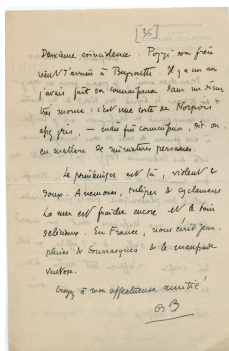 [36]
Deuxième coïncidence. Pozzi son frère
vient d'arriver à Beyrouth. Il y a un an
j'avais fait sa connaissance dans un dîner
très morne : c'est une sorte de Norpois
plus gros, — mais fin connaisseur, dit-on,
en matière de miniatures persanes.
Le printemps est là, violent et
doux. Anémones, tulipes & cyclamens
La mer est froide encore et le bain
délicieux. En France, nous écrit-on,
pluies & bourrasques & le
Croyez à mon affectueuse amitié.
GB